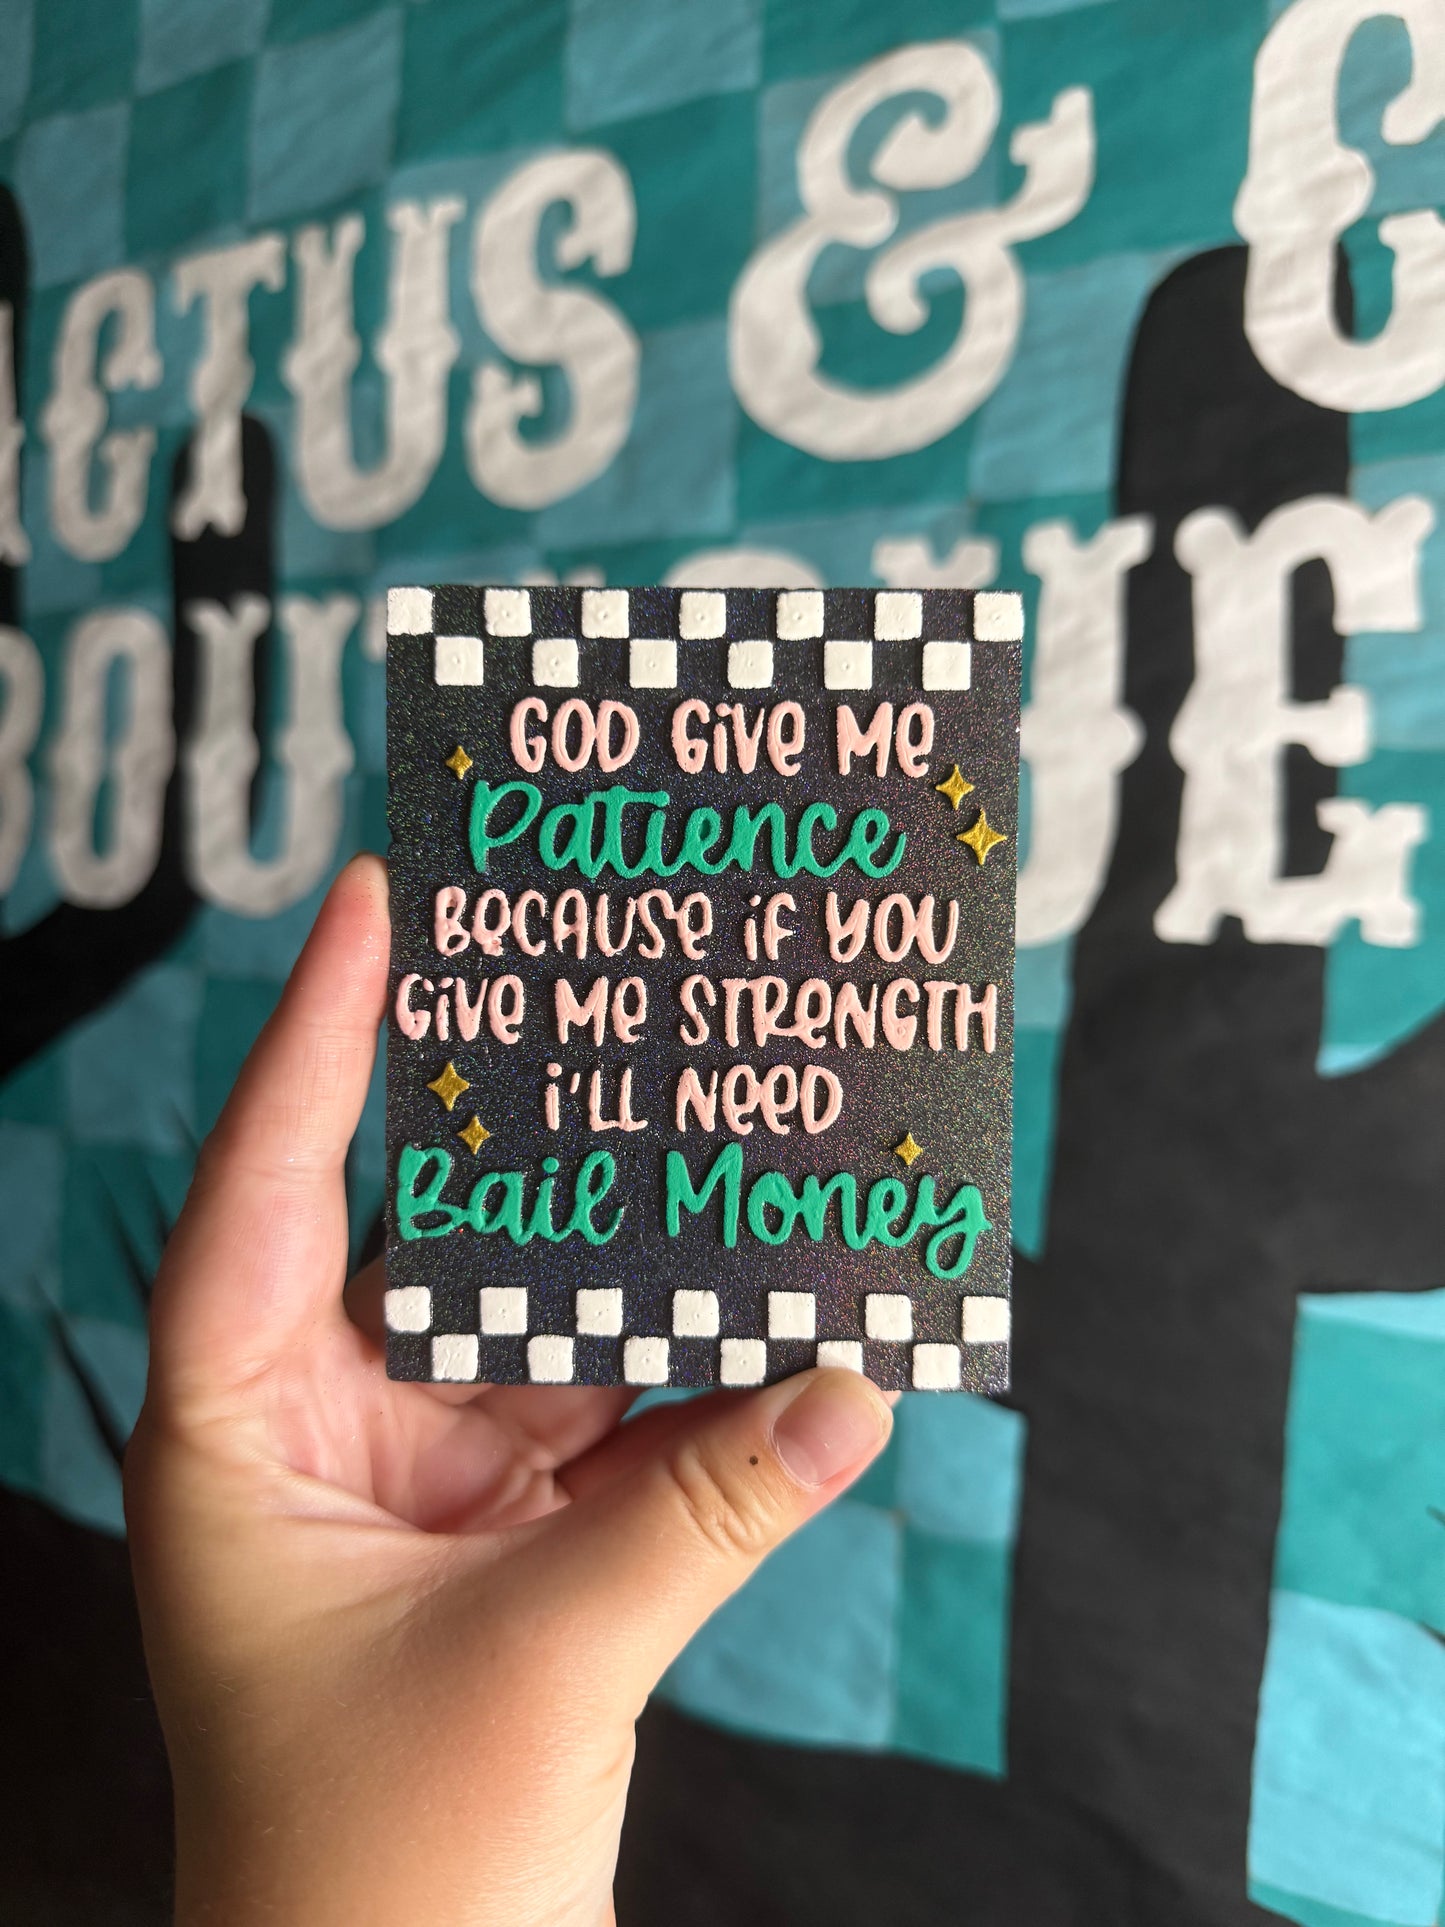 ACTUS & C
BOUT UE
GOD GIVE ME
Patience
BECAUSE IF YOU
GIVE ME STRENGTH
I'LL NEED
Bail Money